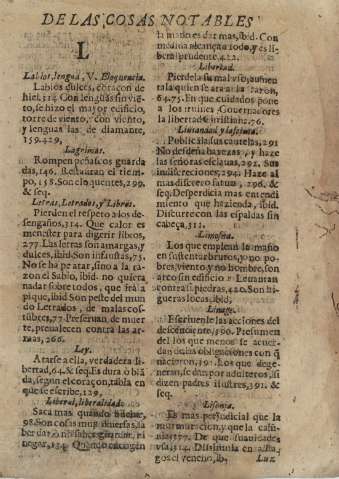 DE LAS COSAS NOTABLES
L
Labios, lengua, V. Eloquencia.
Labios dulces, coraçon de
hiel, 314. Con lenguas sin vie
to, se hizo el mayor edificio,
torre de viento, con viento,
y lenguas las de diamante,
159. 429,
Lagrimas.
Rompen peñascos guarda
das, 146. Restauran el tiem-
po, 158. Son eloquentes, 299,
& seq.
Letras, Letrados, y Libros.
Pierden el respeto a los de-
sengaños, 314. Que calor es
menester para digerir libros,
277. Las letras son amargas, y
dulces, ibid. Son infaustas, 75.
No se ha de atar, sino a la ra-
zon el Sabio, ibid. no quiera
nadar sobre todos, que irà a
pique, ibid. Son peste del mun
do Letrados, de malas cos-
tubres, 77. Preservan de muer
te, prevalecen contra las ar-
mas, 266.
Ley.
Atarse a ella, verdadera li-
bertad, 64. & seq.
da, segun el coraçon, tabla en
que se escribe, 129.
Liberal, liberalidad.
Saca mas quando
98. Son cosas muy diversas, la
ber dar,
negar, 134. Quando
la mano es dar mas, ibid. Con
medina alcança todo, y es li-
beral prudente, 422.
Libertad.
Pierdela su mal viso, aumen
tala quien se ata a la razon,
64. 75. En que cuidados pone
a los ruines, Governadores
la libertad christiana 76.
Liviandad y lascivia.
Publica las sus cautelas, 291
No desdeña bayezas, y haze
las señoras esclavas, 292. Sus
indiscreciones, 294. Haze al
mas discreto fatuo, 296. &
seq. Desperdicia mas entendi
miento que hazienda, ibid.
Discurre con las espaldas sin
cabeça, 311.
Limosna.
Los que emplean la mano
en sustentar brutos, y no po-
bres, viento y no hombre, son
arco sin edificio Lemantan
contra si piedras, 440. Son hi
gueras locas, ibid;
Linage.
Escriuenle las acciones del
descendiente, 390. Presumen
del los que menos se acuer
dan de las obligaciones con q̃
nacieron, 391. Los que dege-
neran, se dan por adulteros, si
dizen padres ilustres, 391. &
seq.
Lisonja.
Es mas perjudicial que la
murmuracion, y que la calum
nia, 177. De que suavidades
vsa, 314. Dissimula en
gos el veneno, ib.
Luz